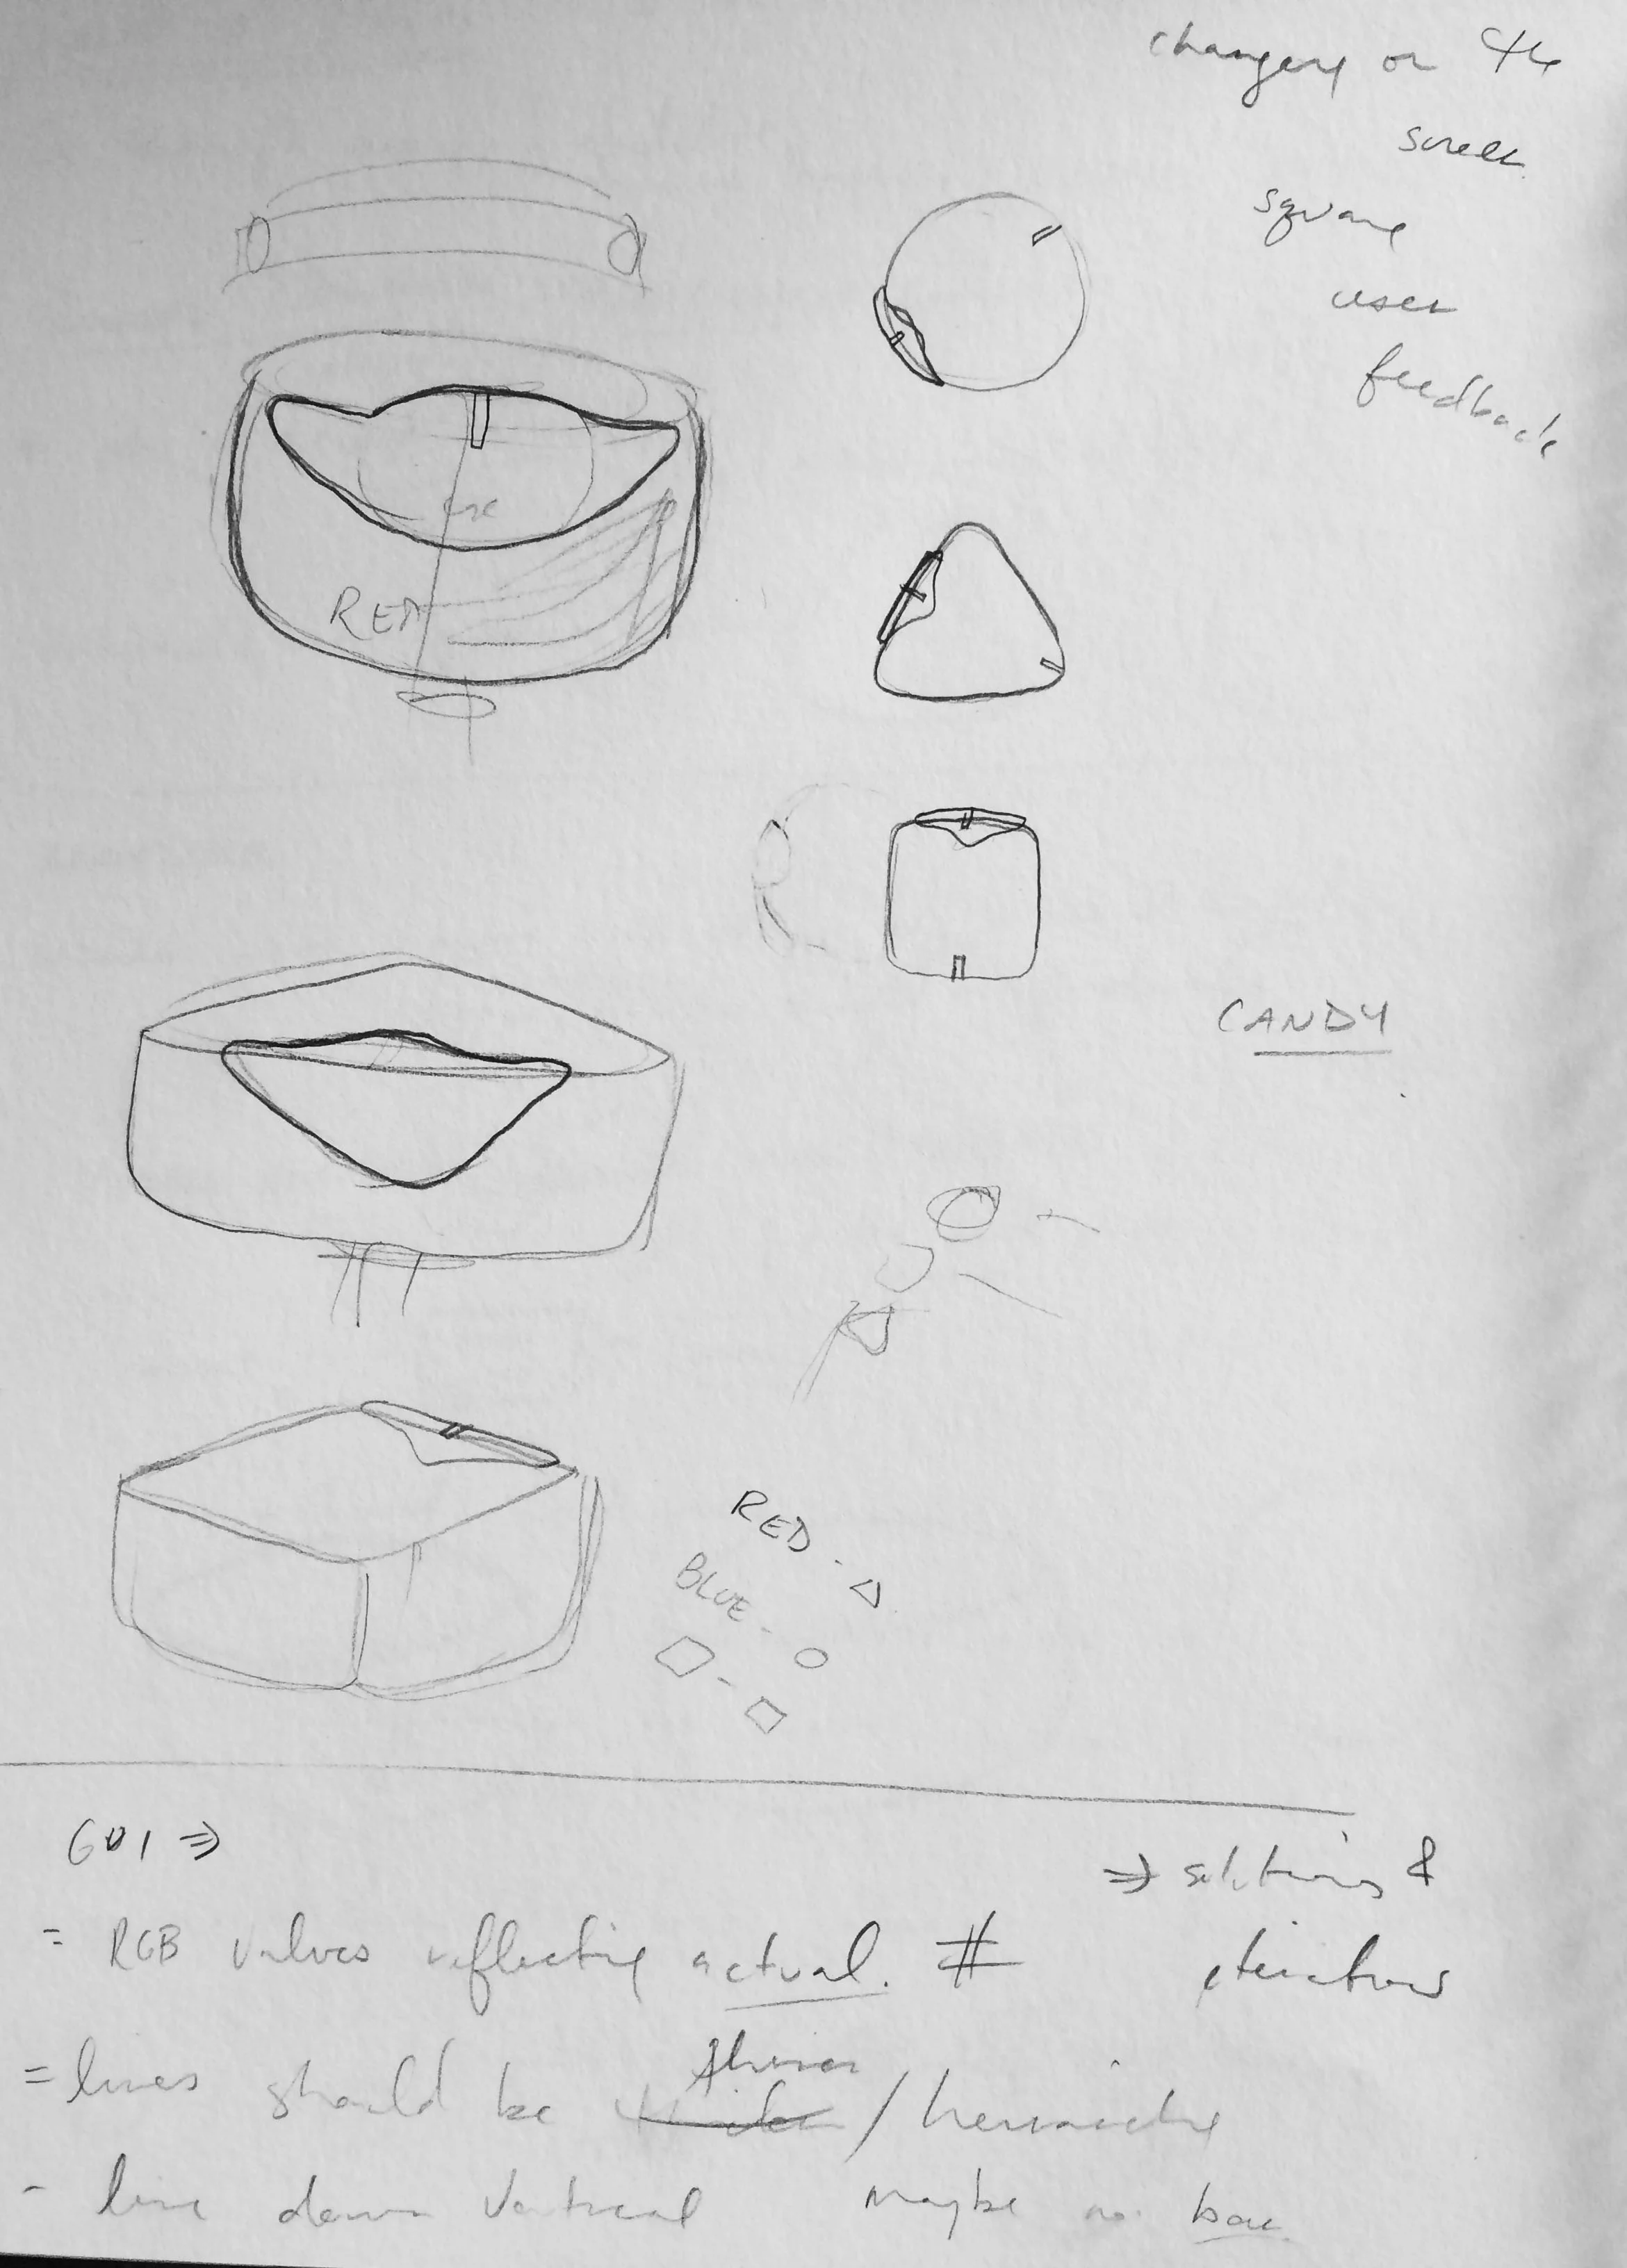 changing on the
screen
square
user
feedback
RED
CANDY
RED -
BLUE -
GUI ⇒
⇒ solutions &
= RGB values reflecting actual. #
iterations
thinner
= lines should be thicker / hierarchy
- line down vertical maybe no box